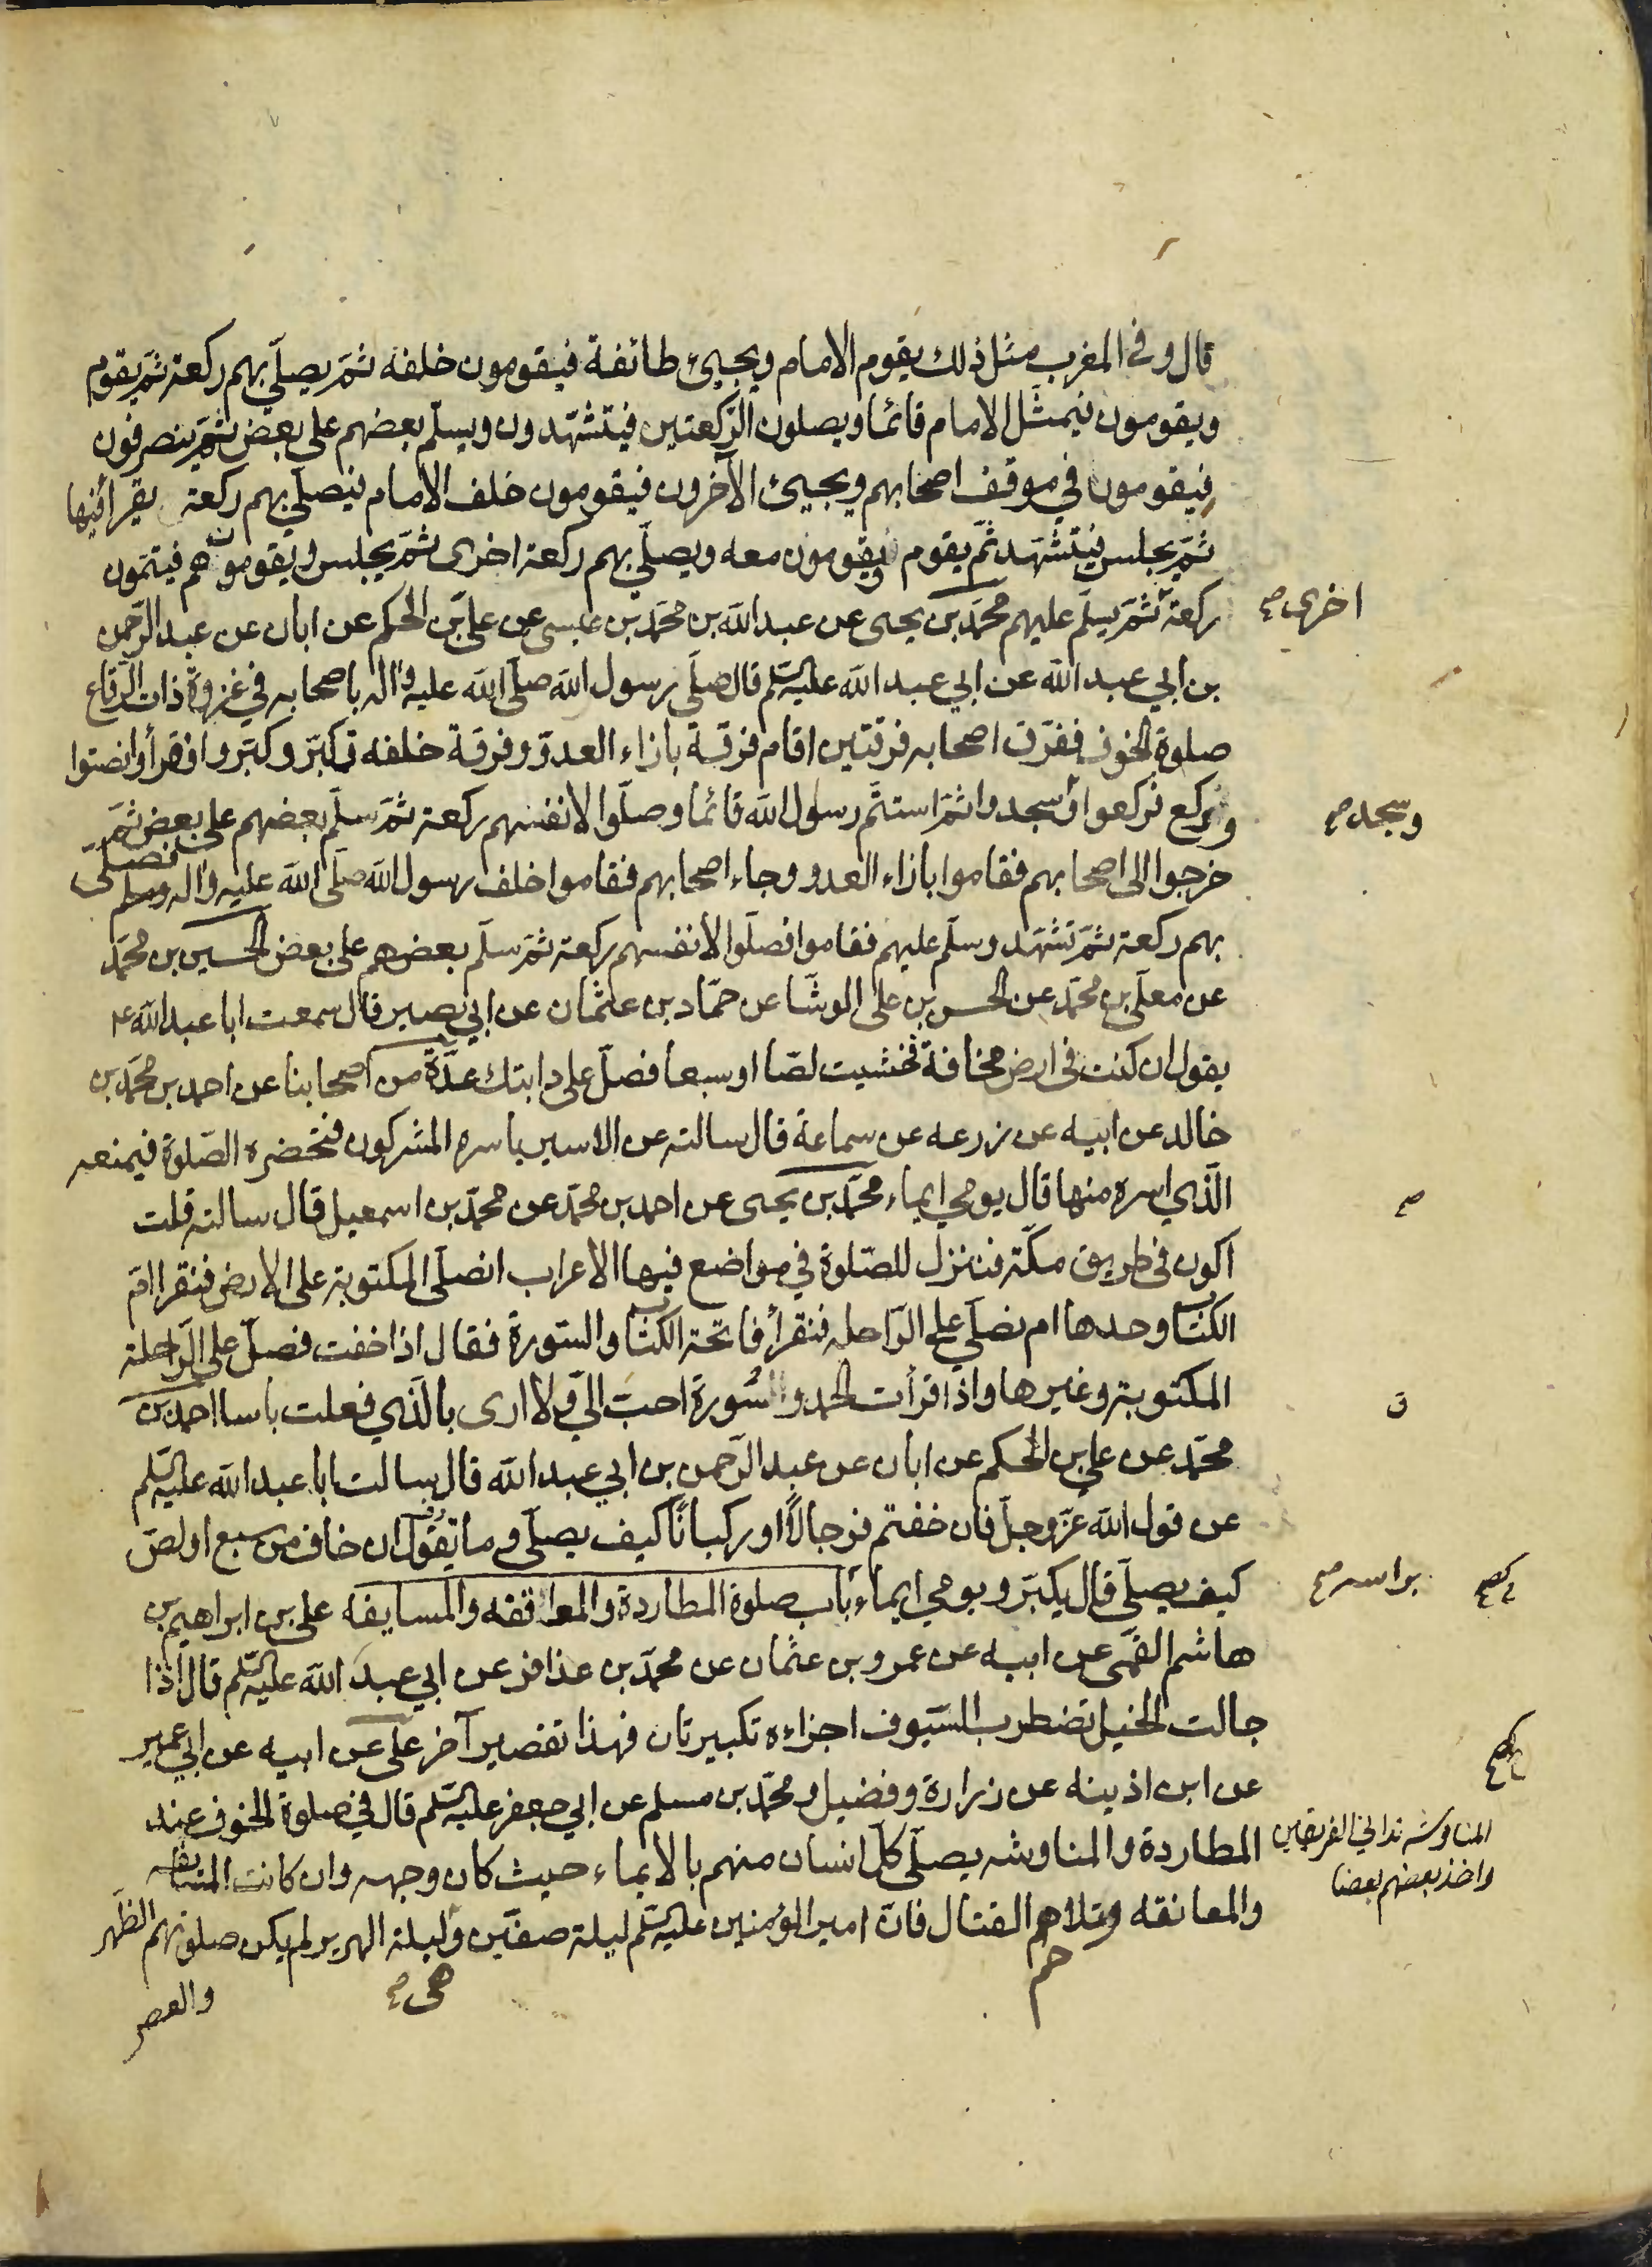 قال وفى المغرب مثل ذلك يقوم الامام ويجيئ طائفة فيقومون خلفه ثمّ يصلّي بهم ركعة ثمّ يقوم
ويقومون فيمثل الامام قائما ويصلون الرّكعتين فيتشهّدون ويسلّم بعضهم على بعض ثمّ ينصرفون
فيقومون في موقف اصحابهم ويجيئ الآخرون فيقومون خلف الامام فيصلّي بهم ركعة يقرأ فيها
ثمّ يجلس فيتشهّد ثمّ يقوم ويقومون معه ويصلّي بهم ركعة اخرى ثمّ يجلس ويقومون هم فيتمّون
ركعة ثمّ يسلّم عليهم محمّد بن يحيى عن عبد الله بن محمّد بن عيسى عن علي بن الحكم عن ابان عن عبد الرّحمن
اخرى صح
بن ابي عبد الله عن ابي عبد الله عليه السّلم قال صلّى رسول الله صلّى الله عليه واله باصحابه في غزوة ذات الرّقاع
صلوة الخوف ففرّق اصحابه فرقتين اقام فرقة بازاء العدوّ وفرقة خلفه فكبّر وكبّروا فقرأ وانصتوا
وركع فركعوا فسجدوا ثمّ استتمّ رسول الله قائما وصلّوا لانفسهم ركعة ثمّ سلّم بعضهم على بعض ثمّ
وسجد صح
خرجوا الى اصحابهم فقاموا بازاء العدو وجاء اصحابهم فقاموا خلف رسول الله صلّى الله عليه واله وسلم فصلّى
بهم ركعة ثمّ تشهّد وسلّم عليهم فقاموا فصلّوا لأنفسهم ركعة ثمّ سلّم بعضهم على بعض الحسين بن محمّد
عن معلّى بن محمّد عن الحسن بن على الوشّا عن حمّاد بن عثمان عن ابي بصير قال سمعت ابا عبد الله ع
يقول ان كنت فى ارض مخافة فخشيت لصّا او سبعا فصلّ على دابتك عدّة من اصحابنا عن احمد بن محمّد بن
خالد عن ابيه عن زرعه عن سماعة قال سالته عن الاسير ياسره المشركون فتحضره الصّلوة فيمنعه
الّذي اسره منها قال يومي ايماء محمّد بن يحيى عن احمد بن محمّد عن محمّد بن اسمعيل قال سالته قلت
صح
اكون فى طريق مكّة فننزل للصّلوة في مواضع فيها الاعراب انصلّى المكتوبة على الارض فنقرا امّ
الكتاب وحدها ام نصلّي على الرّاحله فنقرأ فاتحة الكتاب والسّورة فقال اذا خفت فصلّ على الرّاحلة
المكتوبة وغيرها واذا قرأت الحمد والسّورة احبّ الىّ ولا ارى بالّذي فعلت باسا احمد بن
محمّد عن علي بن الحكم عن ابان عن عبد الرّحمن بن ابي عبد الله قال سالت ابا عبد الله عليه السّلم
عن قول الله عزّوجلّ فان خفتم فرجالًا او ركبانًا كيف يصلّى وما تقول ان خاف من سبع او لصّ
كيف يصلّى قال يكبّر ويومي ايماء باب صلوة المطاردة والمواقفه والمسايفه على بن ابراهيم بن
براسه صح
هاشم القمّى عن ابيه عن عمرو بن عثمان عن محمّد بن عذافر عن ابي عبد الله عليه السّلم قال اذا
جالت الخيل تضطرب السّيوف اجزاءه تكبيرتان فهذا تقصير آخر على عن ابيه عن ابي عمير
عن ابن اذينه عن زرارة وفضيل ومحمّد بن مسلم عن ابي جعفر عليه السّلم قال في صلوة الخوف عند
المطاردة والمناوشه يصلّى كلّ انسان منهم بالايماء حيث كان وجهه وان كانت المسايفه
المناوشه تداني الفريقين
واخذ بعضهم بعضا
والمعانقه وتلاحم القتال فانّ امير المؤمنين عليه السّلم ليلة صفّين وليلة الهرير لم يكن صلوتهم الظّهر
هى صح
والعصر